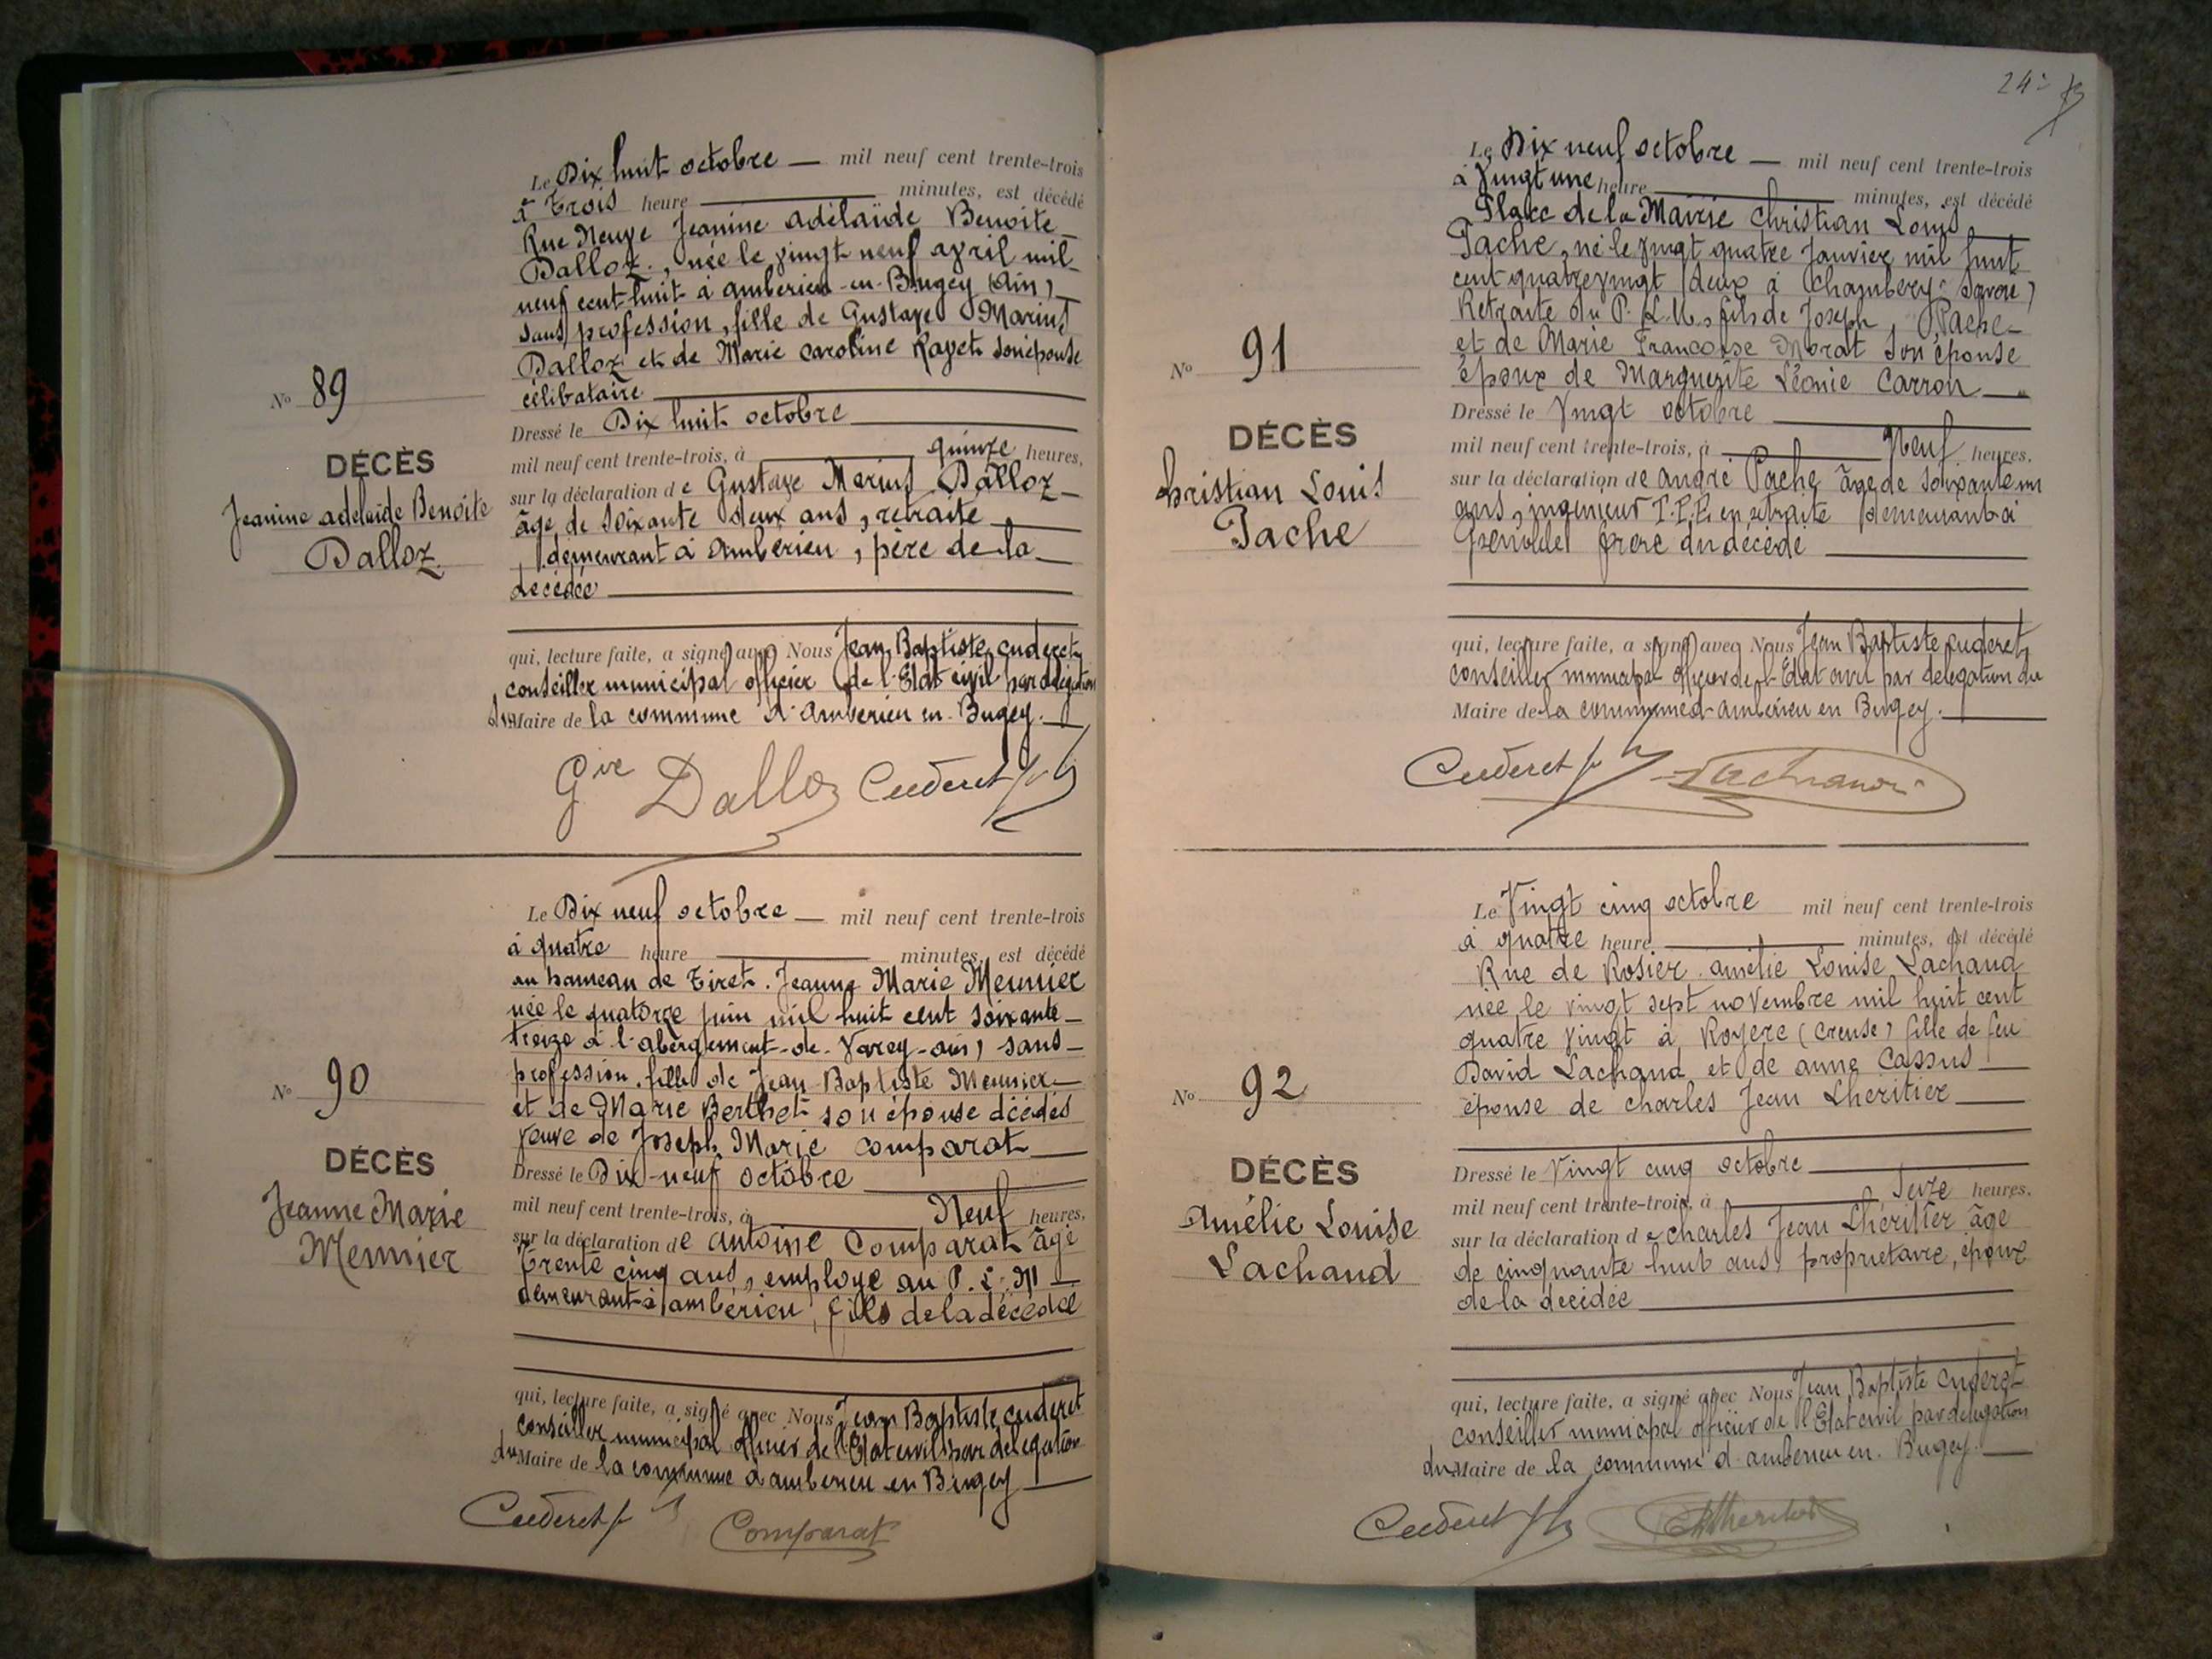 Le Dix huit octobre — mil neuf cent trente-trois
à Trois heure minutes, est décédé
Rue Neuve Jeanine adélaïde Benoite
Dalloz, née le vingt neuf avril mil
neuf cent huit à amberieu-en-Bugey (Ain)
sans profession, fille de Gustave Marius
Dalloz et de Marie Caroline Rayet son épouse
célibataire
Dressé le Dix huit octobre
mil neuf cent trente-trois, à quinze heures,
sur la déclaration de Gustave Marius Dalloz
âgé de soixante deux ans, retraité
demeurant à Ambérieu, père de la
décédée
qui, lecture faite, a signé avec Nous Jean Baptiste Cuderet
conseiller municipal officier de l'Etat civil par délégation
du Maire de la commune d'Amberieu en-Bugey.
Gve Dalloz Cuderet
No 89
DÉCÈS
Jeanine adelaide Benoite
Dalloz
Le Dix neuf octobre — mil neuf cent trente-trois
à quatre heure minutes, est décédé
au hameau de Tiret. Jeanne Marie Meunier
née le quatorze juin mil huit cent soixante
treize à l'abergement-de-Varey-ain) sans
profession, fille de Jean Baptiste Meunier
et de Marie Berthet son épouse décédés
veuve de Joseph Marie Comparat
Dressé le Dix-neuf octobre
mil neuf cent trente-trois, à Neuf heures,
sur la déclaration de antoine Comparat âgé
trente cinq ans, employé au P.L.M
demeurant à ambérieu, fils de la décédée
qui, lecture faite, a signé avec Nous Jean Baptiste Cuderet
conseiller municipal officier de l'Etat civil par delegation
du Maire de la commune d'amberieu en Bugey
Cuderet Comparat
No 90
DÉCÈS
Jeanne Marie
Meunier
24
Le Dix neuf octobre — mil neuf cent trente-trois
à Vingt une heure minutes, est décédé
Place de la Mairie Christian Louis
Pache, né le vingt quatre Janvier mil huit
cent quatre vingt deux à Chambéry (Savoie)
Retraité du P.L.M, fils de Joseph, Pache
et de Marie Francoise Morat son épouse
époux de Marguerite Léonie Carron
Dressé le Vingt octobre
mil neuf cent trente-trois, à Neuf heures,
sur la déclaration de André Pache âgé de soixante un
ans, ingénieur T.P.E. en retraite demeurant à
Grenoble frère du décédé
qui, lecture faite, a signé avec Nous Jean Baptiste Cuderet
conseiller municipal officier de l'Etat civil par delegation du
Maire de la commune d'amberieu en Bugey.
Cuderet
No 91
DÉCÈS
Christian Louis
Pache
Le Vingt cinq octobre mil neuf cent trente-trois
à quatre heure minutes, est décédé
Rue de Rosier. amélie Louise Lachaud
née le vingt sept novembre mil huit cent
quatre vingt à Royere (Creuse) fille de feu
David Lachaud et de anne Cassus
épouse de charles Jean Lheritier
Dressé le Vingt cinq octobre
mil neuf cent trente-trois, à Seize heures.
sur la déclaration de charles Jean Lhéritier âgé
de cinquante huit ans, propriétaire, époux
de la décédée
qui, lecture faite, a signé avec Nous Jean Baptiste Cuderet
conseiller municipal officier de l'Etat civil par delegation
du Maire de la commune d'amberieu en Bugey.
Cuderet
No 92
DÉCÈS
Amélie Louise
Lachaud